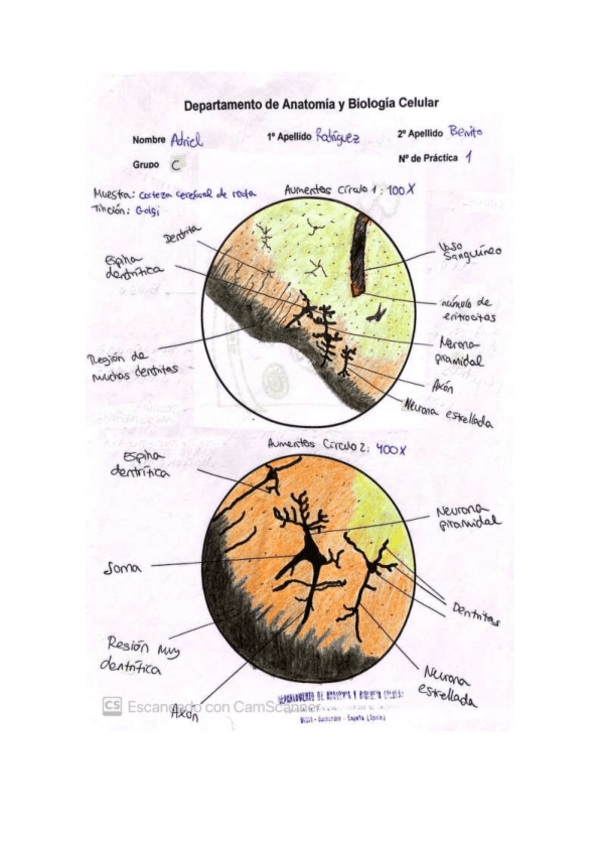 Departamento de Anatomía y Biología Celular
Nombre Adriel 1º Apellido Rodríguez 2º Apellido Benito
Grupo C Nº de Práctica 1
Muestra: corteza cerebral de rata Aumentos Círculo 1: 100X
Tinción: Golgi
Dendrita
Espina
dentrítica
Vaso
Sanguíneo
cúmulo de
eritrocitos
Nerona
piramidal
Región de
muchas dentritas
Axón
Neurona estrellada
Aumentos Círculo 2: 400X
Espina
dentrítica
Neurona
piramidal
Soma
Dentritas
Resión muy
dentrítica
Neurona
estrellada
Axon
DEPARTAMENTO DE ANATOMIA Y BIOLOGIA CELULAR
CS Escaneado con CamScanner
Santander - España (Spain)